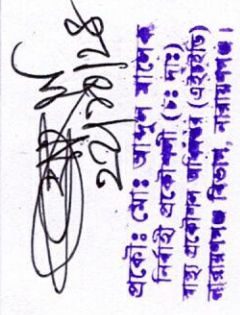 প্রকৌঃ মোঃ আব্দুল মালেক
নির্বাহী প্রকৌশলী (চঃ দাঃ)
স্বাস্থ্য প্রকৌশল অধিদপ্তর (এইচইডি)
নারায়ণগঞ্জ বিভাগ, নারায়ণগঞ্জ।